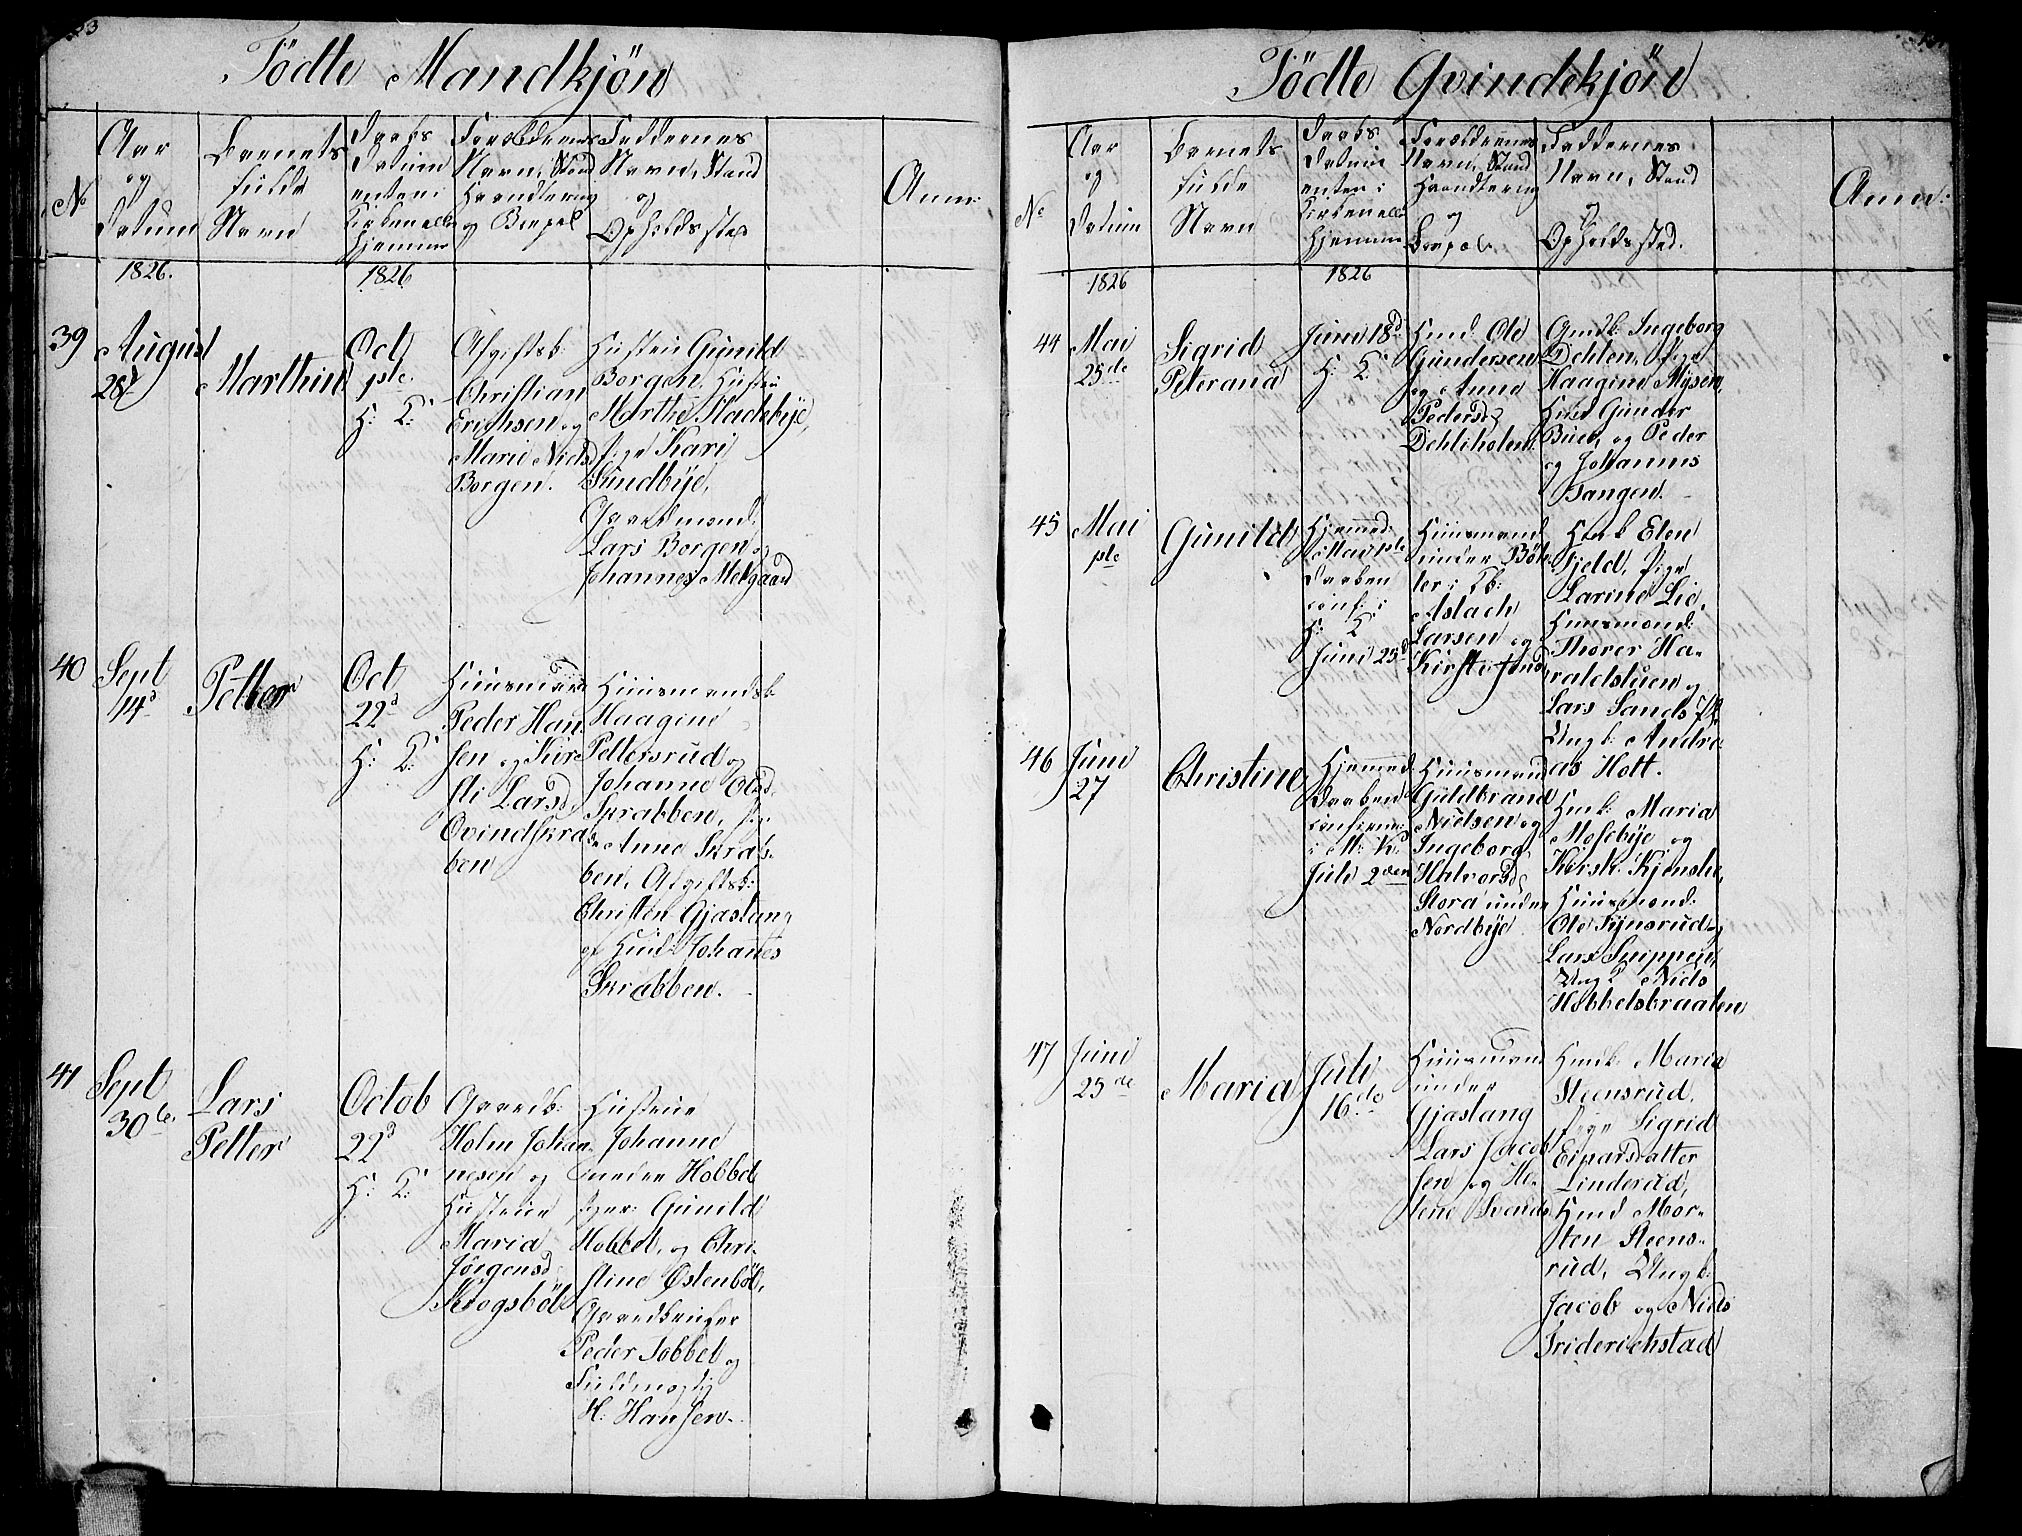 Födte Mandkjön
No
Aar
og
Datum
Barnets
fulde
Navn
Daabs
Datum
enten i
Kirken eller
Hjemme
Forældrenes
Navn, Stand
Haandtering
og Bopæl
Faddernes
Navn, Stand
og
Opholdssted
Anm:
1826.
1826
39
August
28
Marthin
Oct
1ste
H: K:
Afgiftsb:
Christian
Erichsen og
Marie Nielsd
Borgen.
Hustrue Gunild
Borgen, Hustru
Marthe Stadebye,
Pige Kari
Sundbye,
Gaardmænd:
Lars Borgen og
Johannes Melgaard
40
Sept
14d
Petter
Oct
22d
H: K:
Huusmand
Peder Han
sen og Kir
sti Larsd
Övindskra
ben
Huusmandsk
Haagine
Pettersrud og
Johanne Olsd
Skrabben, Pige
Anne Skrab-
ben, Afgiftsb:
Christen Gjaslang
og Huusd: Johannes
Skrabben.
41
Sept
30te
Lars
Petter
Octob
22d
H: K:
Gaardb:
Holm Johan-
nesen og
Hustrue
Maria
Jörgensd
Krogsböl
Hustrue
Johanne
nedre Hobbel
Piger: Gunild
Hobbel, og Chri-
stine Östenböl,
Gaardbruger
Peder Hobbel og
Fuldmægtig
H: Hansen.
Födte Qvindekjön
No
Aar
og
Datum
Barnets
fulde
Navn
Daabs
Datum
enten i
Kirken eller
Hjemme
Forældrenes
Navn, Stand
Haandtering
og
Bopæl
Faddernes
Navn, Stand
og
Opholdssted.
Anm:
1826
1826
44
Mai
25de
Sigrid
Peterana
Juni 18d
H: K:
Huusd: Ole
Gundersen
og Anne
Pedersd
Dehliholen
Gmdk: Ingeborg
Dehlen, Pige
Haagine Mysen,
Huusd Gunder
Buer, og Peder
og Johannes
Tangen.
45
Mai
1ste
Gunild
Hjemmed:
Mai 1ste
Daaben
conf: i
H: K:
Juni 25d
Huusmand
under Böh
ler:
Aslach
Larsen og
Kirsti
Husk Elen
Fjeld, Pige
Larine Lie,
Huusmænd:
Thorer Ha-
raldstuen og
Lars Sands
Ungk: Andre
as Hott.
46
Juni
27
Christine
Hjemmed
Daaben
conferm:
i M: K:
Juli 2den
Huusmand
Guldbrand
Nielsen og
Ingeborg
Halvorsd
Stora under
Nordbye
Husk: Maria
Mosebye og
Huusmænd:
Ole Fynsrud og
Lars Snippen,
Ungk: Niels
Hobbelsbraaten
47
Juni
25de
Maria
Juli
16de
Huusmand
under
Gjaslang
Lars Jacob
sen og He-
lene Svends
Husk: Maria
Steensrud,
Pige Sigrid
Einarsdatter
Linderud,
Huusd Mor-
ten Steens-
rud, Ungk:
Jacob og Niels
Friderichstad